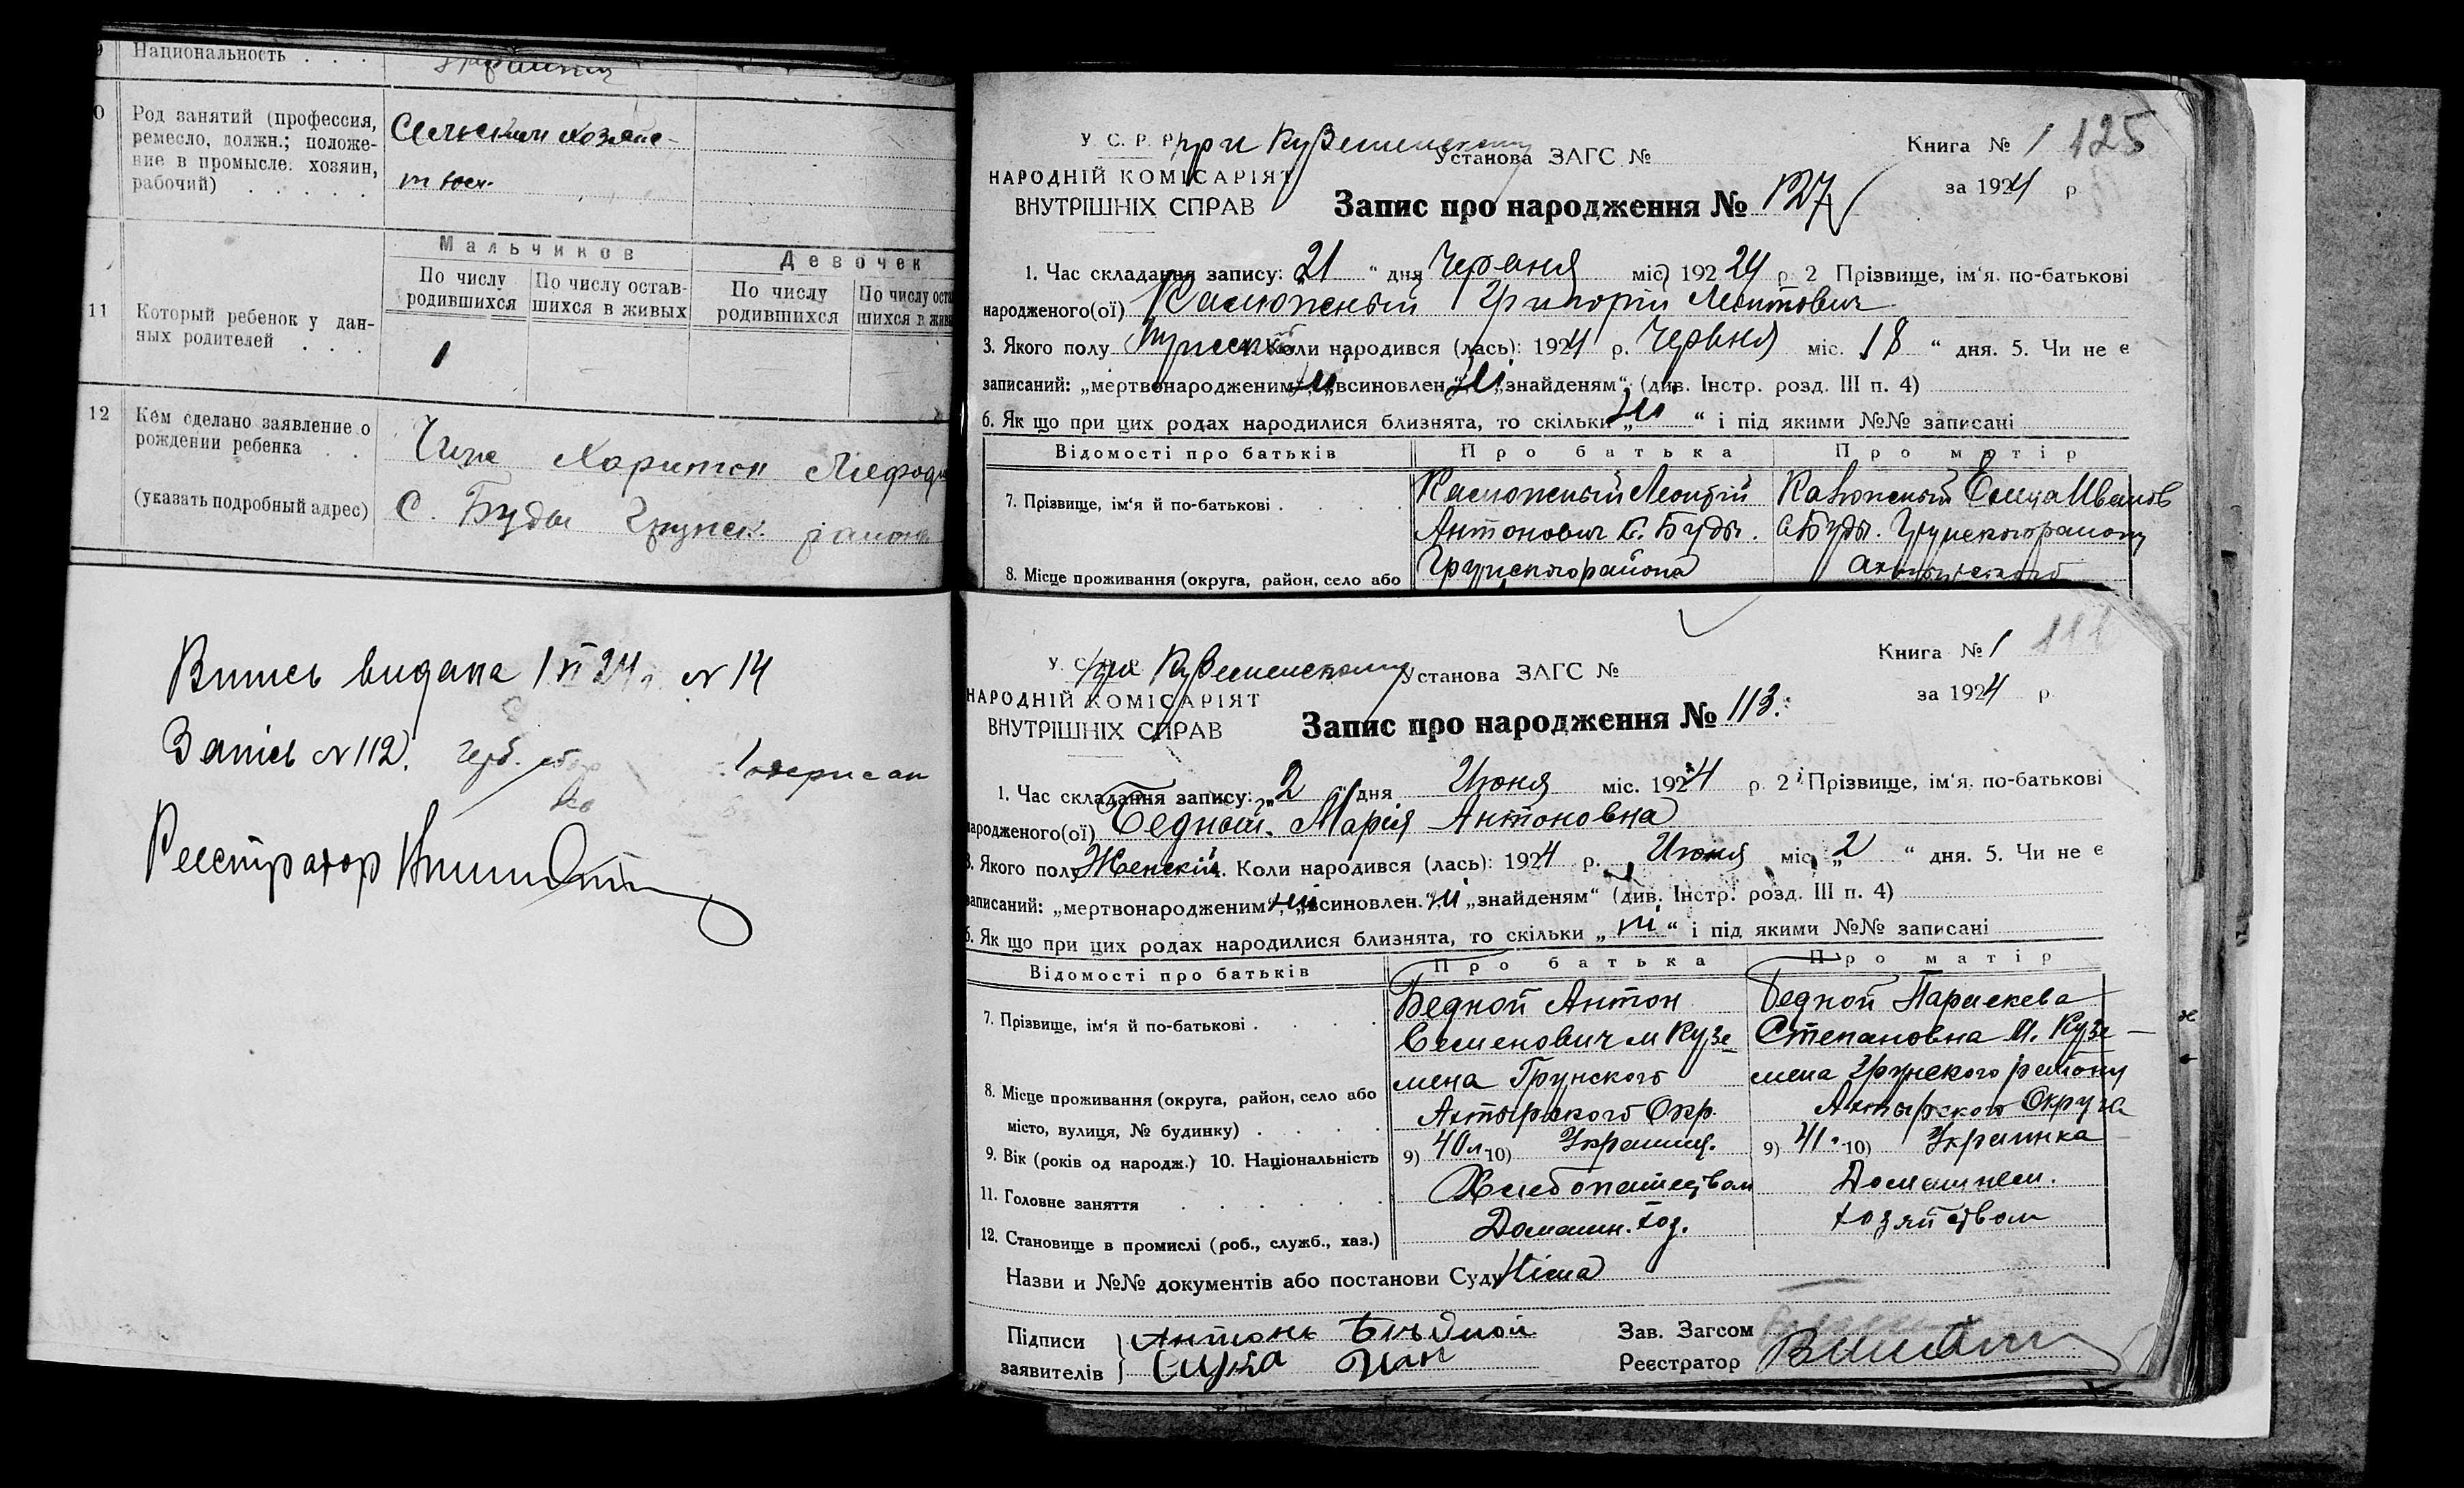 9 Национальность . . .
10 Род занятий (профессия,
ремесло, должн.; положе-
ние в промысле. хозяин,
рабочий) . . . . .
Сельским хозяйс-
твом
11 Который ребенок у дан-
ных родителей . . .
Мальчиков
Девочек
По числу
родившихся
По числу остав-
шихся в живых
По числу
родившихся
По числу оста
шихся в жив
1
12 Кем сделано заявление о
рождении ребенка . .
(указать подробный адрес)
Харитон Мефоди
С. Буды Грунск. района
Випись видана 1 VI 24 г. N 14
Запісь N 112.
Реестратор
У. С. Р. Р.
при Куземенском
Установа ЗАГС №
Книга № 1 125
НАРОДНІЙ КОМІСАРІЯТ
ВНУТРІШНІХ СПРАВ
за 1924 р.
Запис про народження № 127
1. Час складання запису: „21“ дня Червня міс. 1924 р. 2 Прізвище, ім‘я. по-батькові
народженого(ої) Калюжный Григорій Леонтович
3. Якого полу Мужеск. 4. Коли народився (лась): 1924 р. Червня міс. 18 “ дня. 5. Чи не є
записаний: „мертвонародженим“ ні, „всиновлен.“ ні „знайденям“ (див. Інстр. розд. III п. 4)
6. Як що при цих родах народилися близнята, то скільки „ ні “ і під якими №№ записані
Відомості про батьків
Про батька
Про мотір
7. Прізвище, ім‘я й по-батькові . . . .
Калюжный Леонтій
Антонович С. Буды.
Грунского района
Калюжный Иванов
С Буды. Грунского району
Ахтырского
8. Місце проживання (округа, район, село або
У. С. Р. Р.
при Куземенском
Установа ЗАГС №
Книга № 1 111
НАРОДНІЙ КОМІСАРІЯТ
ВНУТРІШНІХ СПРАВ
за 1924 р.
Запис про народження № 113.
1. Час складання запису: „2“ дня Июня міс. 1924 р. 2 Прізвище, ім‘я. по-батькові
народженого(ої) Бедной. Марія Антоновна
3. Якого полу Женскій. Коли народився (лась): 1924 р. Июня міс. „2 “ дня. 5. Чи не є
записаний: „мертвонародженим“ ні, „всиновлен.“ ні „знайденям“ (див. Інстр. розд. III п. 4)
6. Як що при цих родах народилися близнята, то скільки „ ні “ і під якими №№ записані
Відомості про батьків
Про батька
Про матір
7. Прізвище, ім‘я й по-батькові . . . .
Бедной Антон
Семенович м Кузе
мена Грунского
Ахтырского Окр.
Бедной Параскева
Степановна М. Кузе-
мена Грунского району
Ахтырского Округа
8. Місце проживання (округа, район, село або
місто, вулиця, № будинку) . . . .
9. Вік (років од народж.) 10. Національність
9) 40 л 10) Украинц.
9) 41. 10) Украинка
11. Головне заняття . . . . . .
Хлебопашеством
Домашнем.
12. Становище в промислі (роб., служб., хаз.)
Домашн. хоз.
хозяйством
Назви и №№ документів або постанови Суду Нема
Підписи
заявителів
Антонъ Бѣдной
Зав. Загсом
Реєстратор